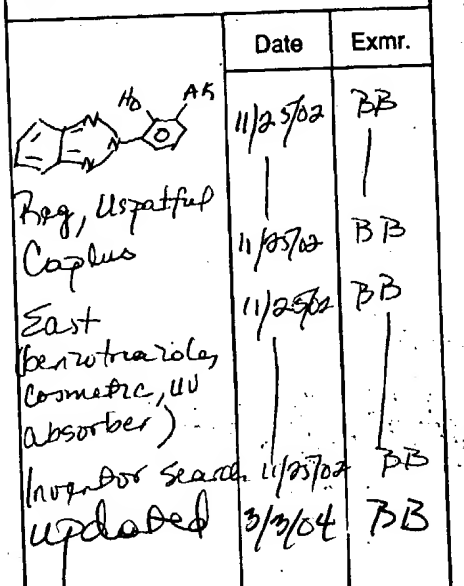 Date Exmr.
HO AK
N N N 11/25/02 BB
Reg, Uspatful
Caplus 11/25/02 BB
East 11/25/02 BB
(benzotriazole,
cosmetic, UV
absorber)
Inventor search 11/25/02 BB
updated 3/3/04 BB